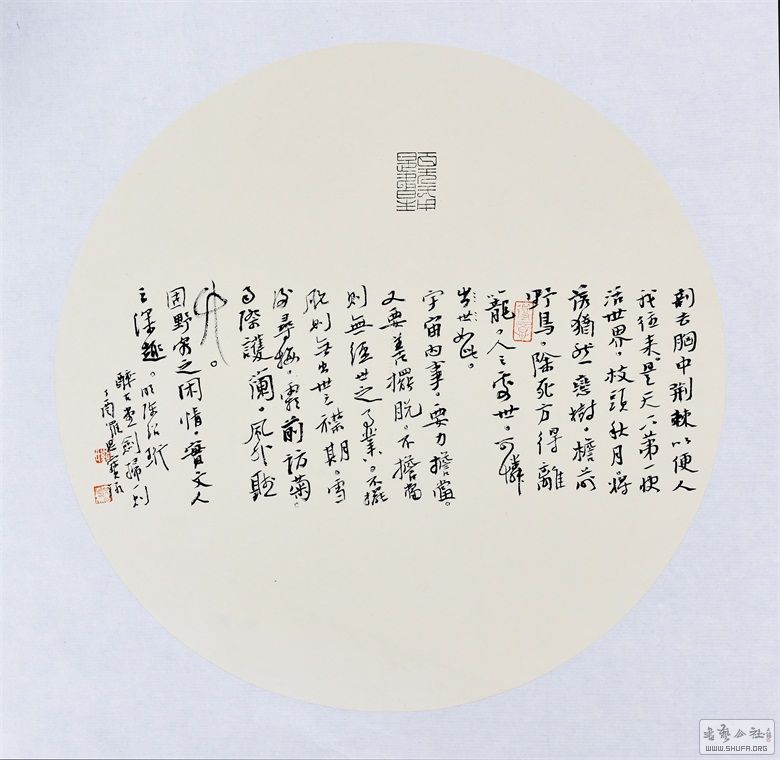 剗去胸中荆棘以便人
我往来。是天下第一快
活世界。枝頭秋月。將
落猶然戀樹。檐前
野鳥。除死方得離
籠。人之處世。可憐
如此。
宇宙内事。要力擔當。
又要善擺脱。不擔當
則無經世之事業。不擺
脱則無出世之襟期。雪
後尋梅。霜前訪菊。
雨際護蘭。風外聽
竹。
固野客之闲情。實文人
之深趣。明陸紹珩
醉古堂劍掃一則
書藝公社
WWW.SHUFA.ORG